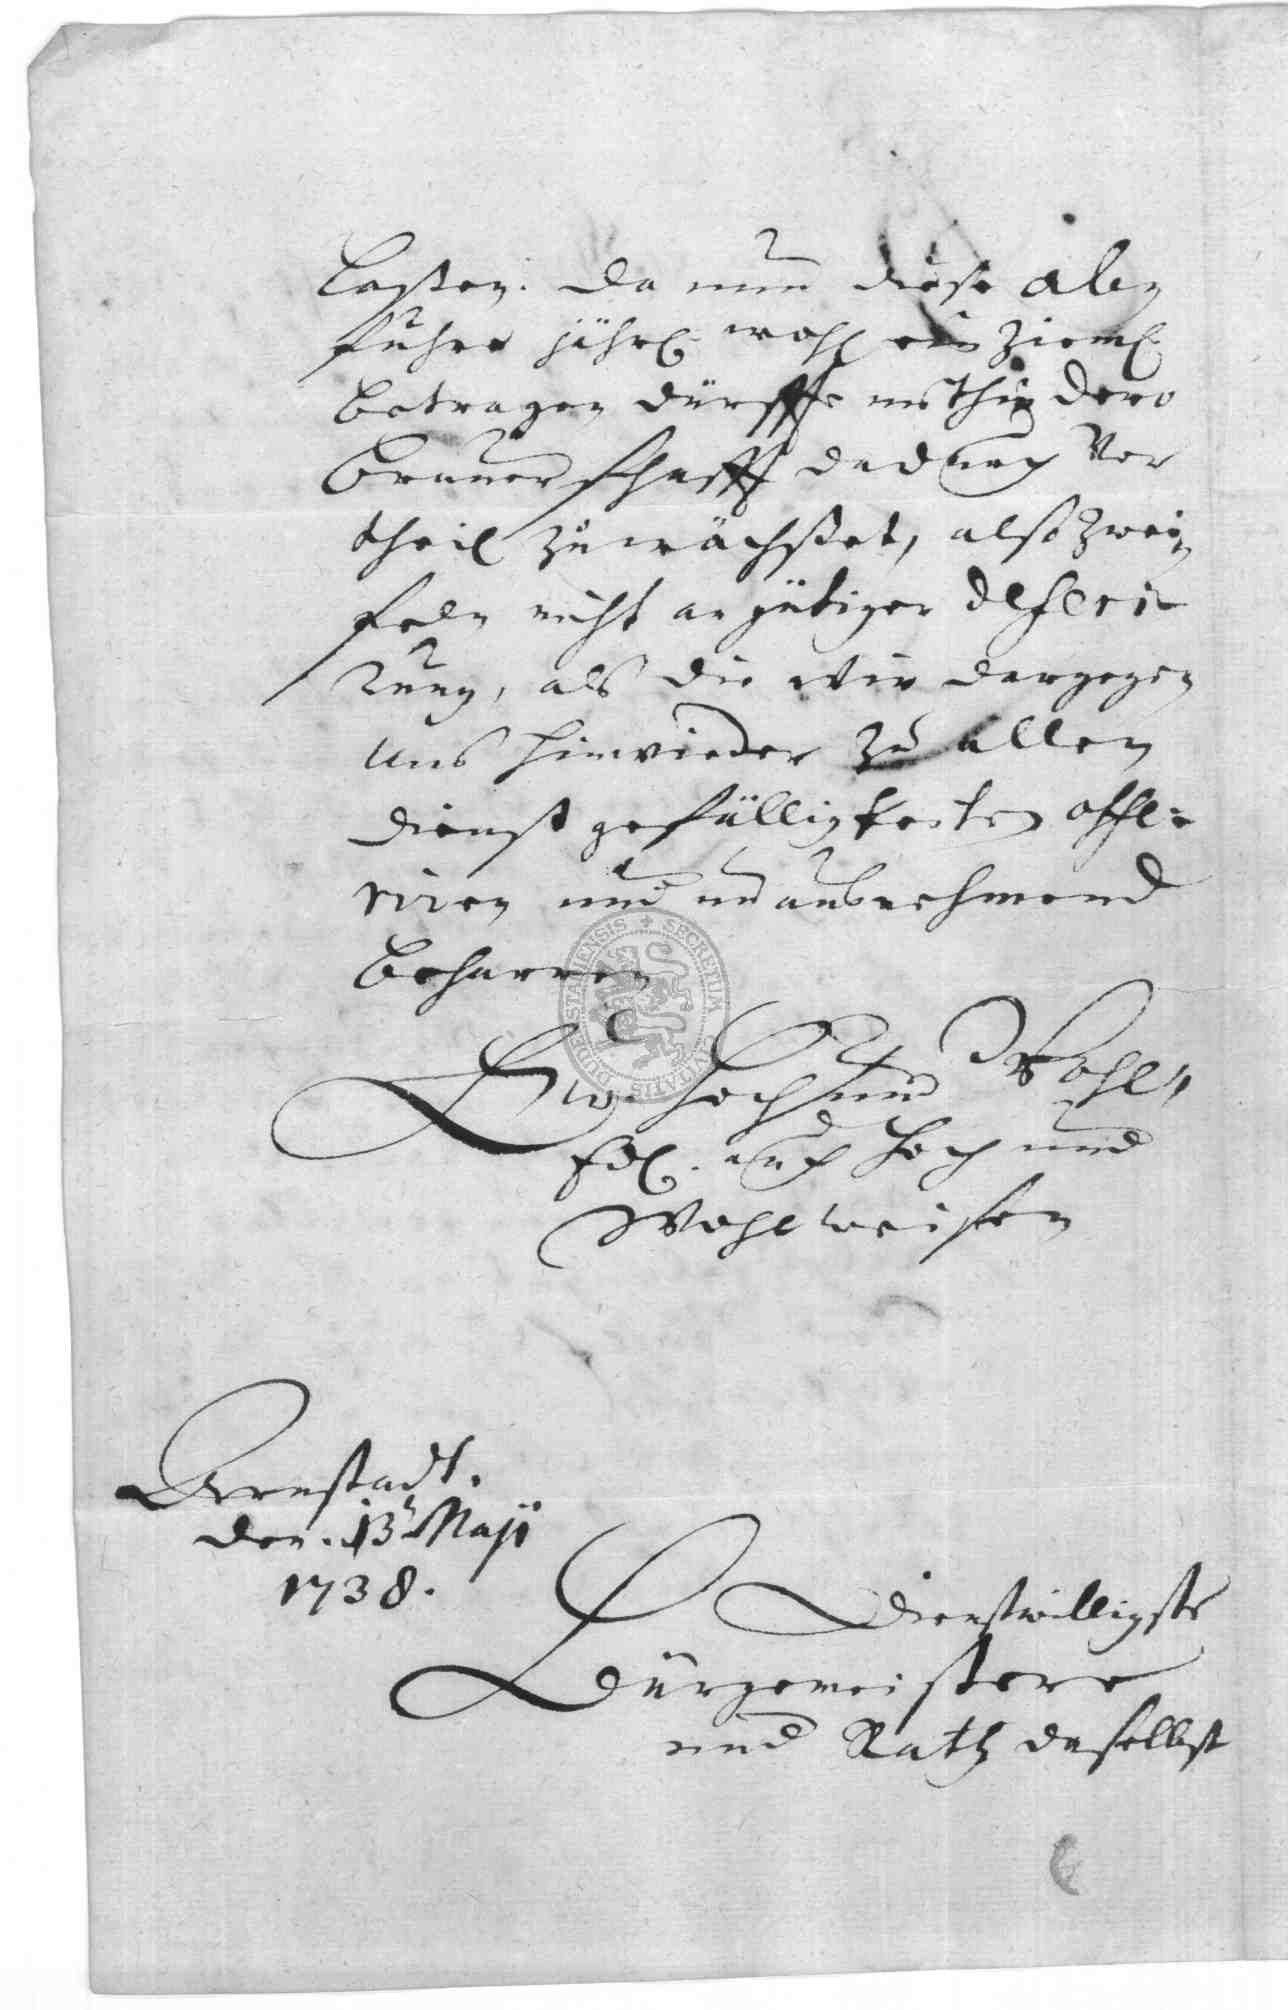 laßen. Da nun diese Ab
fuhre jährl. wohl ein Zieml.
betragen dürffte mithin Dero
Brauerschafft dadurch Vor
theil zu wächßet, also zwei
feln nicht an gütiger deferi
rung, als die wir dargegen
uns hinwieder zu allen
dienst gefälligkeiten offe
riren und unausnehmend
beharren
Ew. Hoch und Wohl
Edl. auch Hoch und
Wohlweisen
Arnstadt.
den. 13t Maji
1738.
Dienstwilligste
Bürgemeistere
und Rath daselbst
SECRETUM CIVITATIS DUDERSTADIENSIS